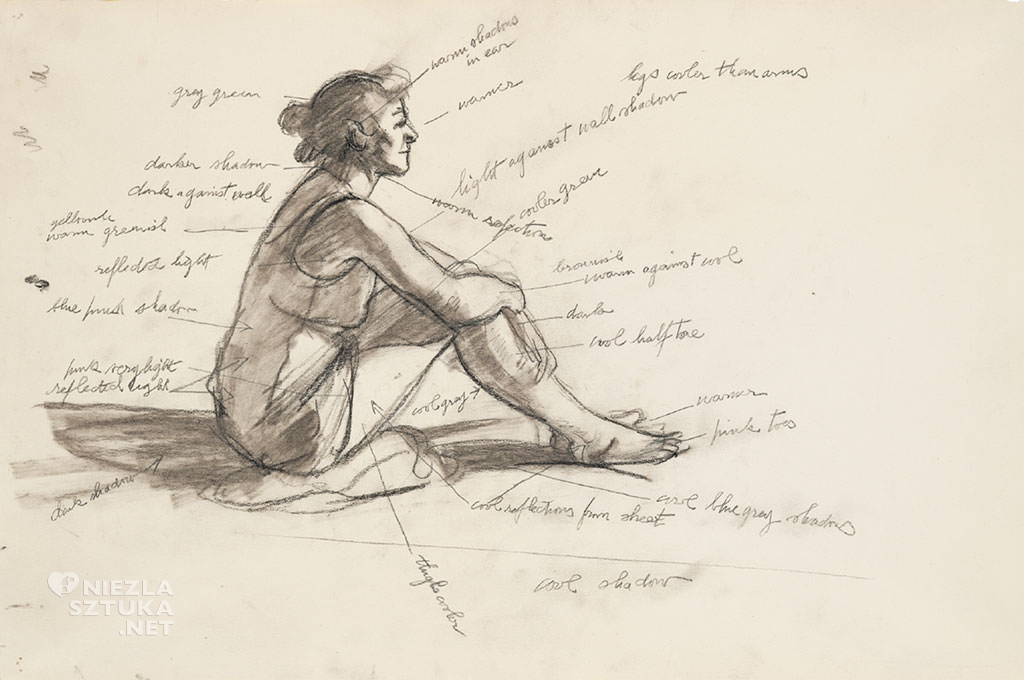 warm shadows
in ear
grey green
warmer
legs cooler than arms
light against wall shadow
darker shadow
dark against wall
cooler
warm reflections
warm greenish
reflected light
brownish
warm against cool
blue pink shadow
dark
cool half tone
pink very light
reflected light
cool gray
warmer
pink toes
dark shadow
cool reflections from sheet
cool blue gray shadows
thigh cooler
cool shadow
NIEZLA
SZTUKA
.NET